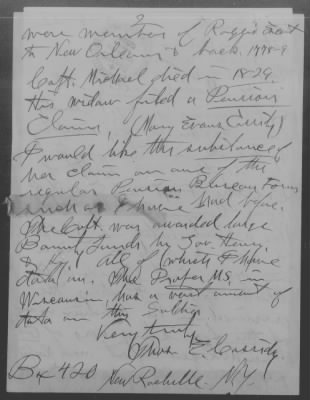 2
were members of Roger's Exped
to New Orleans & back. 1778-9
Capt. Michael died in 1829.
His widow filed a Pension
Claim, (Mary Evans Cassidy)
I would like the substance of
her claim on one of the
regular Pension Bureau Forms
such as I have had before.
The Capt. was awarded large
Bounty Lands by Gov. Henry,
& Ky. all of which I have
data on. The Draper MS. in
Wisconsin has a vast amount of
data on this Soldier
Very truly
E. Cassidy
Box 420
New Rochelle. N.Y.